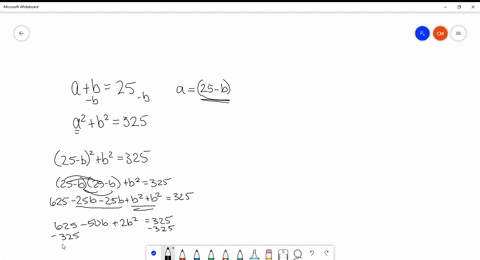 Microsoft Whiteboard
CM
a+b=25 a=(25-b)
-b -b
a²+b²=325
(25-b)²+b²=325
(25-b)(25-b)+b²=325
625-25b-25b+b²+b²=325
625-50b+2b²=325
-325 -325